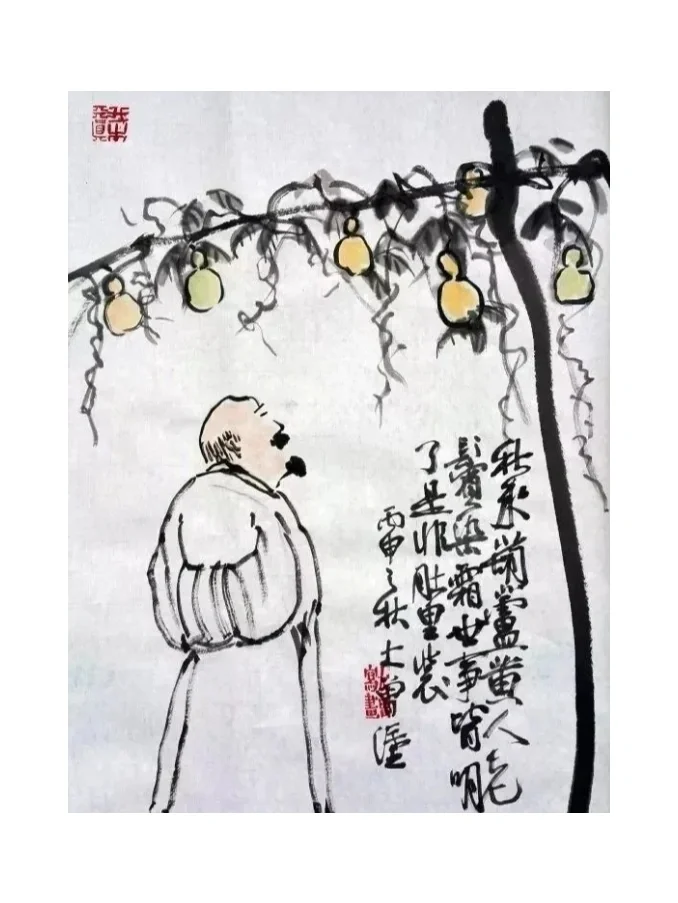 秋来葫蘆黄人老
鬓染霜世事皆明
了是非肚里装
丙申之秋